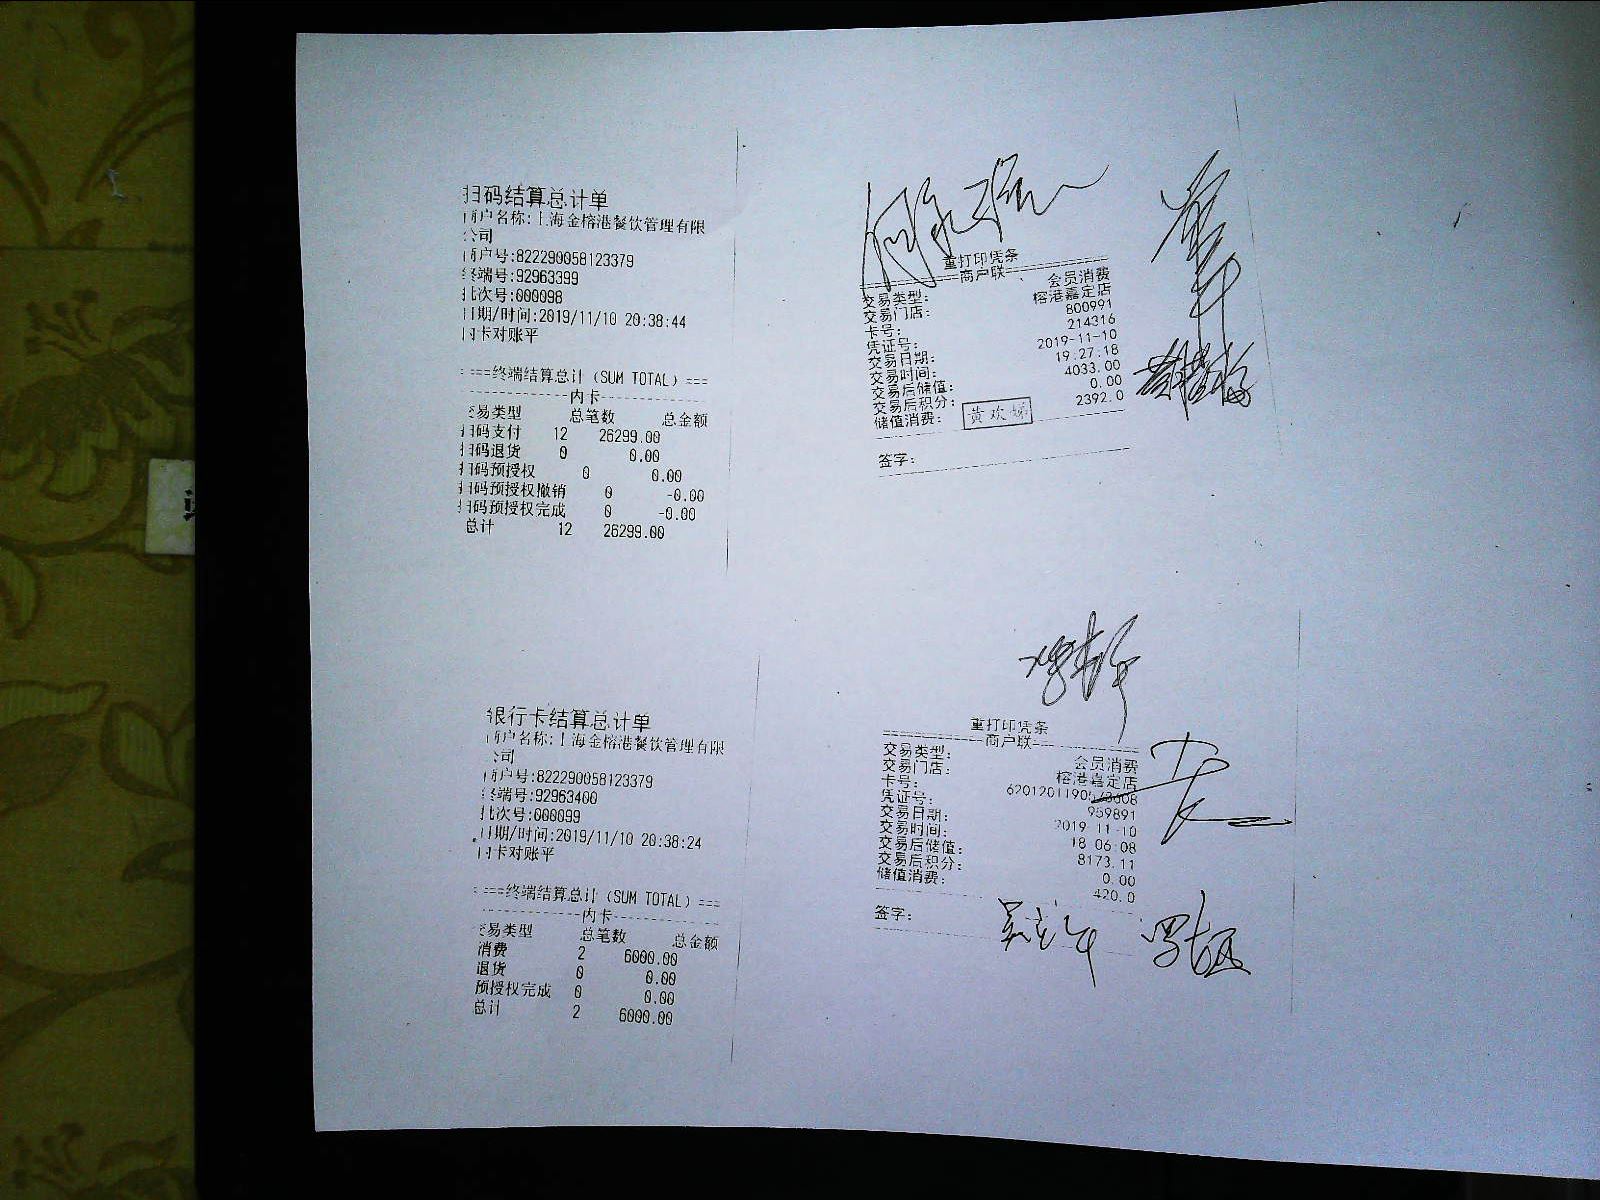 扫码结算总计单
商户名称:上海金榕港餐饮管理有限
公司
商户号:822290058123379
终端号:92963399
批次号:000098
日期/时间:2019/11/10 20:38:44
内卡对账平
====终端结算总计(SUM TOTAL)===
内卡
交易类型 总笔数 总金额
扫码支付 12 26299.00
扫码退货 0 0.00
扫码预授权 0 0.00
扫码预授权撤销 0 -0.00
扫码预授权完成 0 -0.00
总计 12 26299.00
重打印凭条
商户联
交易类型: 会员消费
交易门店: 榕港嘉定店
卡号: 800991
凭证号: 214316
交易日期: 2019-11-10
交易时间: 19:27:18
交易后储值: 4033.00
交易后积分: 0.00
储值消费: 2392.0
黄欢
签字:
银行卡结算总计单
商户名称:上海金榕港餐饮管理有限
公司
商户号:822290058123379
终端号:92963400
批次号:000099
日期/时间:2019/11/10 20:38:24
内卡对账平
====终端结算总计(SUM TOTAL)===
内卡
交易类型 总笔数 总金额
消费 2 6000.00
退货 0 0.00
预授权完成 0 0.00
总计 2 6000.00
重打印凭条
商户联
交易类型: 会员消费
交易门店: 榕港嘉定店
卡号:
凭证号: 959891
交易日期: 2019-11-10
交易时间: 18:06:08
交易后储值: 8173.11
交易后积分: 0.00
储值消费: 420.0
签字: